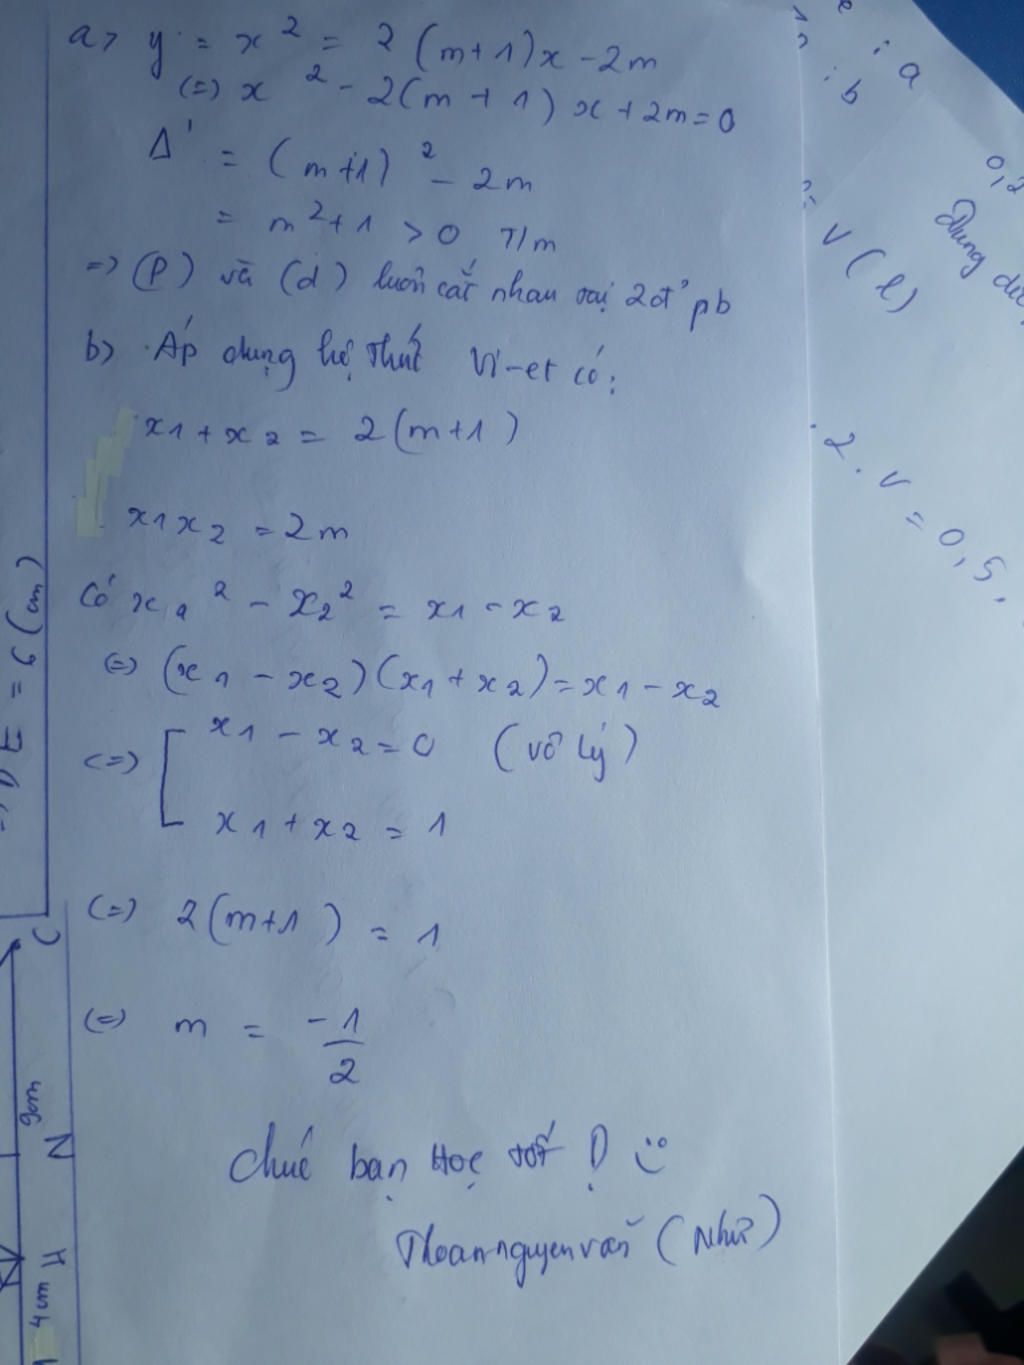 a> y = x² = 2(m+1)x - 2m
(=) x² - 2(m+1)x + 2m = 0
Δ' = (m+1)² - 2m
= m² + 1 > 0 T/m
=> (P) và (d) luôn cắt nhau tại 2đ' pb
b> Áp dụng hệ thức Vi-et có:
x1 + x2 = 2(m+1)
x1x2 = 2m
Có x1² - x2² = x1 - x2
(=) (x1 - x2)(x1 + x2) = x1 - x2
(=) [ x1 - x2 = 0 (vô lý)
x1 + x2 = 1
(=) 2(m+1) = 1
(=) m = -1/2
Chúc bạn Học tốt !
Thoannguyenvăn (Như)
DE = 6 (cm)
C
9cm
N
H
4cm
: a
: b
0,2
Dung
V (l)
. 2 . V = 0,5 .